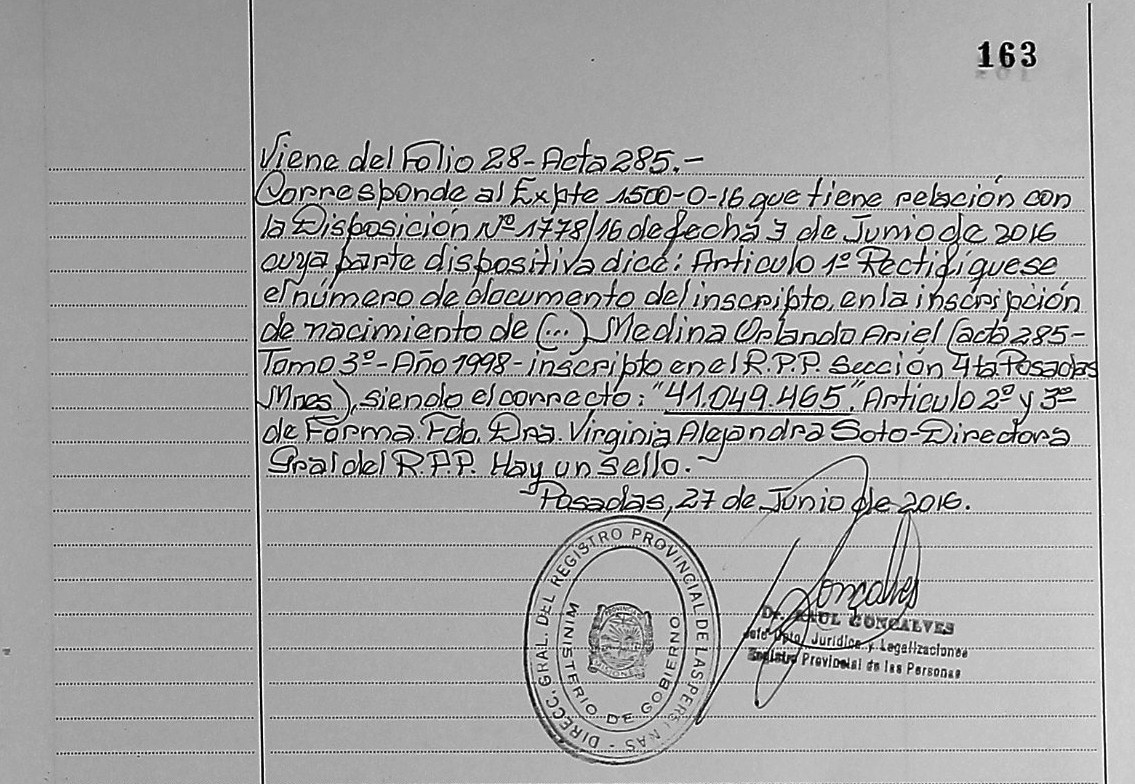 163
Viene del Folio 28- Acta 285.-
Corresponde al Expte 1500-O-16 que tiene relación con
la Disposición Nº 1778/16 de fecha 3 de Junio de 2016
cuya parte dispositiva dice: Articulo 1º Rectifíquese
el número de documento del inscripto, en la inscripción
de nacimiento de (...) Medina Orlando Ariel (acta 285-
Tomo 3º- Año 1998- inscripto en el R.P.P. Sección 4ta Posadas
Mnes), siendo el correcto: "41.049.465". Articulo 2º y 3º
de Forma. Fdo. Dra. Virginia Alejandra Soto- Directora
Gral del R.P.P. Hay un sello.-
Posadas, 27 de Junio de 2016.
DIRECC. GRAL. DEL REGISTRO PROVINCIAL DE LAS PERSONAS
MINISTERIO DE GOBIERNO
Gonçalves
Dr. RAUL GONCALVES
Jefe Dpto. Jurídico y Legalizaciones
Registro Provincial de las Personas